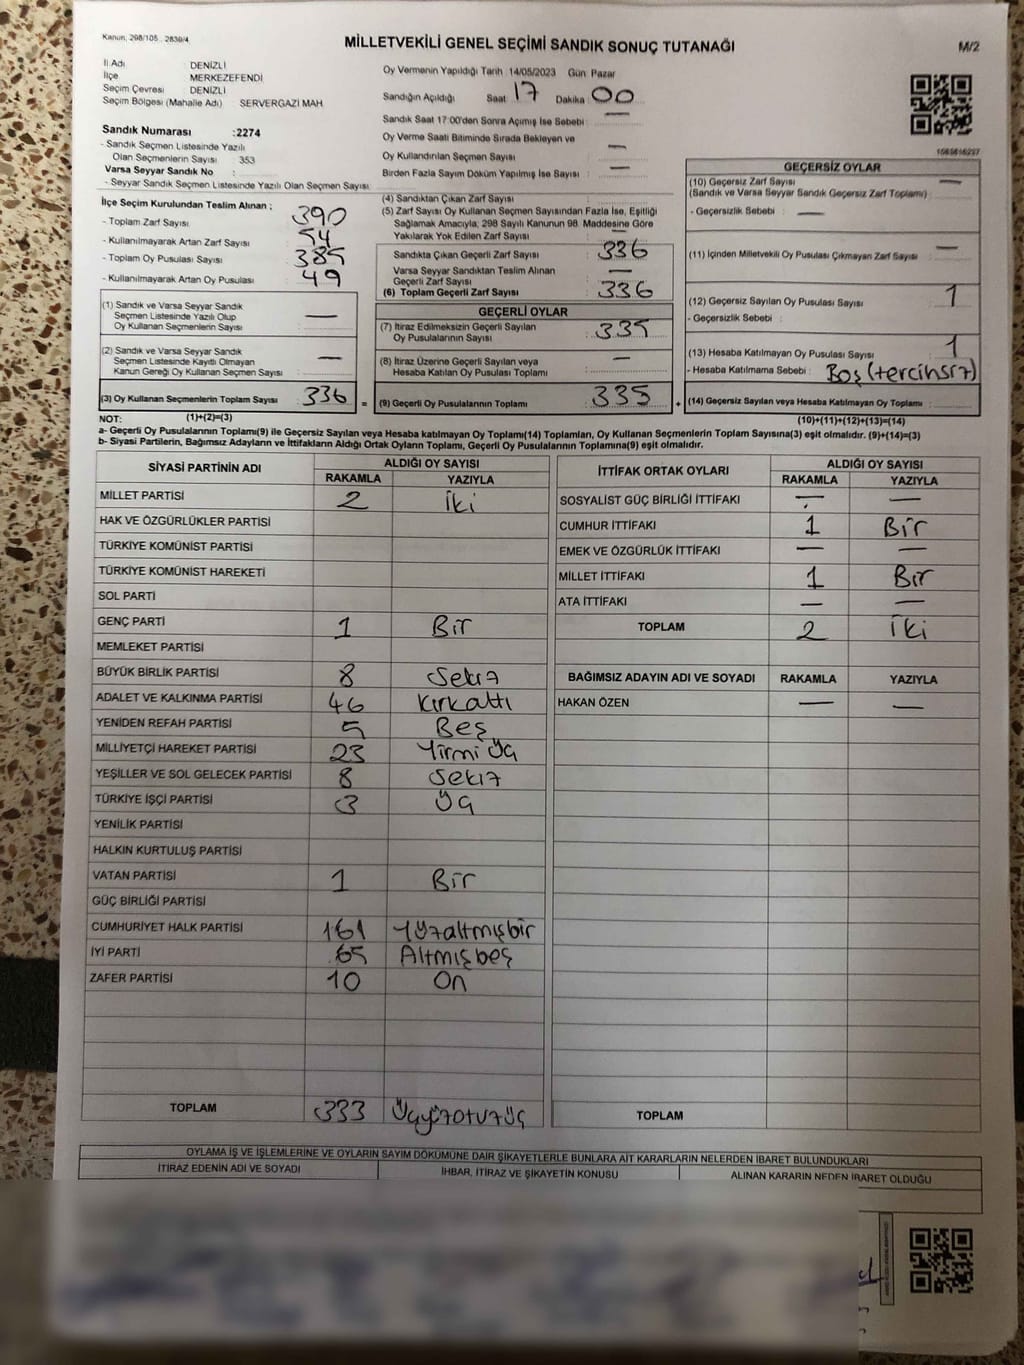 Kanun, 298/105 . 2839/4
MİLLETVEKİLİ GENEL SEÇİMİ SANDIK SONUÇ TUTANAĞI
M/2
İl Adı : DENİZLİ
İlçe MERKEZEFENDİ
Seçim Çevresi : DENİZLİ
Seçim Bölgesi (Mahalle Adı) : SERVERGAZİ MAH
Sandık Numarası :2274
- Sandık Seçmen Listesinde Yazılı
Olan Seçmenlerin Sayısı : 353
Varsa Seyyar Sandık No :
- Seyyar Sandık Seçmen Listesinde Yazılı Olan Seçmen Sayısı
Oy Vermenin Yapıldığı Tarih 14/05/2023 Gün Pazar
Sandığın Açıldığı Saat 17 Dakika 00
Sandık Saat 17:00'den Sonra Açımış İse Sebebi : —
Oy Verme Saati Bitiminde Sırada Bekleyen ve
Oy Kullandırılan Seçmen Sayısı : —
Birden Fazla Sayım Döküm Yapılmış İse Sayısı : —
İlçe Seçim Kurulundan Teslim Alınan ;
- Toplam Zarf Sayısı : 390
- Kullanılmayarak Artan Zarf Sayısı : 54
- Toplam Oy Pusulası Sayısı : 385
- Kullanılmayarak Artan Oy Pusulası : 49
(1) Sandık ve Varsa Seyyar Sandık
Seçmen Listesinde Yazılı Olup
Oy Kullanan Seçmenlerin Sayısı : —
(2) Sandık ve Varsa Seyyar Sandık
Seçmen Listesinde Kayıtlı Olmayan
Kanun Gereği Oy Kullanan Seçmen Sayısı : —
(3) Oy Kullanan Seçmenlerin Toplam Sayısı : 336 =
(4) Sandıktan Çıkan Zarf Sayısı : —
(5) Zarf Sayısı Oy Kullanan Seçmen Sayısından Fazla İse, Eşitliği
Sağlamak Amacıyla, 298 Sayılı Kanunun 98. Maddesine Göre
Yakılarak Yok Edilen Zarf Sayısı : —
Sandıkta Çıkan Geçerli Zarf Sayısı : 336
Varsa Seyyar Sandıktan Teslim Alınan
Geçerli Zarf Sayısı : —
(6) Toplam Geçerli Zarf Sayısı : 336
GEÇERLİ OYLAR
(7) İtiraz Edilmeksizin Geçerli Sayılan
Oy Pusulalarının Sayısı : 335
(8) İtiraz Üzerine Geçerli Sayılan veya
Hesaba Katılan Oy Pusulası Toplamı : —
(9) Geçerli Oy Pusulalarının Toplamı : 335 +
1565616237
GEÇERSİZ OYLAR
(10) Geçersiz Zarf Sayısı : —
(Sandık ve Varsa Seyyar Sandık Geçersiz Zarf Toplamı)
- Geçersizlik Sebebi : —
(11) İçinden Milletvekili Oy Pusulası Çıkmayan Zarf Sayısı : —
(12) Geçersiz Sayılan Oy Pusulası Sayısı : 1
- Geçersizlik Sebebi :
(13) Hesaba Katılmayan Oy Pusulası Sayısı : 1
- Hesaba Katılmama Sebebi : Boş (tercihsiz)
(14) Geçersiz Sayılan veya Hesaba Katılmayan Oy Toplamı :
NOT: (1)+(2)=(3) (10)+(11)+(12)+(13)=(14)
a- Geçerli Oy Pusulalarının Toplamı(9) ile Geçersiz Sayılan veya Hesaba katılmayan Oy Toplamı(14) Toplamları, Oy Kullanan Seçmenlerin Toplam Sayısına(3) eşit olmalıdır. (9)+(14)=(3)
b- Siyasi Partilerin, Bağımsız Adayların ve İttifakların Aldığı Ortak Oyların Toplamı, Geçerli Oy Pusulalarının Toplamına(9) eşit olmalıdır.
SİYASİ PARTİNİN ADI ALDIĞI OY SAYISI
RAKAMLA YAZIYLA
MİLLET PARTİSİ 2 İki
HAK VE ÖZGÜRLÜKLER PARTİSİ
TÜRKİYE KOMÜNİST PARTİSİ
TÜRKİYE KOMÜNİST HAREKETİ
SOL PARTİ
GENÇ PARTİ 1 Bir
MEMLEKET PARTİSİ
BÜYÜK BİRLİK PARTİSİ 8 Sekiz
ADALET VE KALKINMA PARTİSİ 46 Kırkaltı
YENİDEN REFAH PARTİSİ 5 Beş
MİLLİYETÇİ HAREKET PARTİSİ 23 Yirmi üç
YEŞİLLER VE SOL GELECEK PARTİSİ 8 Sekiz
TÜRKİYE İŞÇİ PARTİSİ 3 Üç
YENİLİK PARTİSİ
HALKIN KURTULUŞ PARTİSİ
VATAN PARTİSİ 1 Bir
GÜÇ BİRLİĞİ PARTİSİ
CUMHURİYET HALK PARTİSİ 161 Yüzaltmışbir
İYİ PARTİ 65 Altmışbeş
ZAFER PARTİSİ 10 On
TOPLAM 333 Üçyüzotuzüç
İTTİFAK ORTAK OYLARI ALDIĞI OY SAYISI
RAKAMLA YAZIYLA
SOSYALİST GÜÇ BİRLİĞİ İTTİFAKI — —
CUMHUR İTTİFAKI 1 Bir
EMEK VE ÖZGÜRLÜK İTTİFAKI — —
MİLLET İTTİFAKI 1 Bir
ATA İTTİFAKI — —
TOPLAM 2 İki
BAĞIMSIZ ADAYIN ADI VE SOYADI RAKAMLA YAZIYLA
HAKAN ÖZEN — —
TOPLAM
OYLAMA İŞ VE İŞLEMLERİNE VE OYLARIN SAYIM DÖKÜMÜNE DAİR ŞİKAYETLERLE BUNLARA AİT KARARLARIN NELERDEN İBARET BULUNDUKLARI
İTİRAZ EDENİN ADI VE SOYADI İHBAR, İTİRAZ VE ŞİKAYETİN KONUSU ALINAN KARARIN NEDEN İBARET OLDUĞU